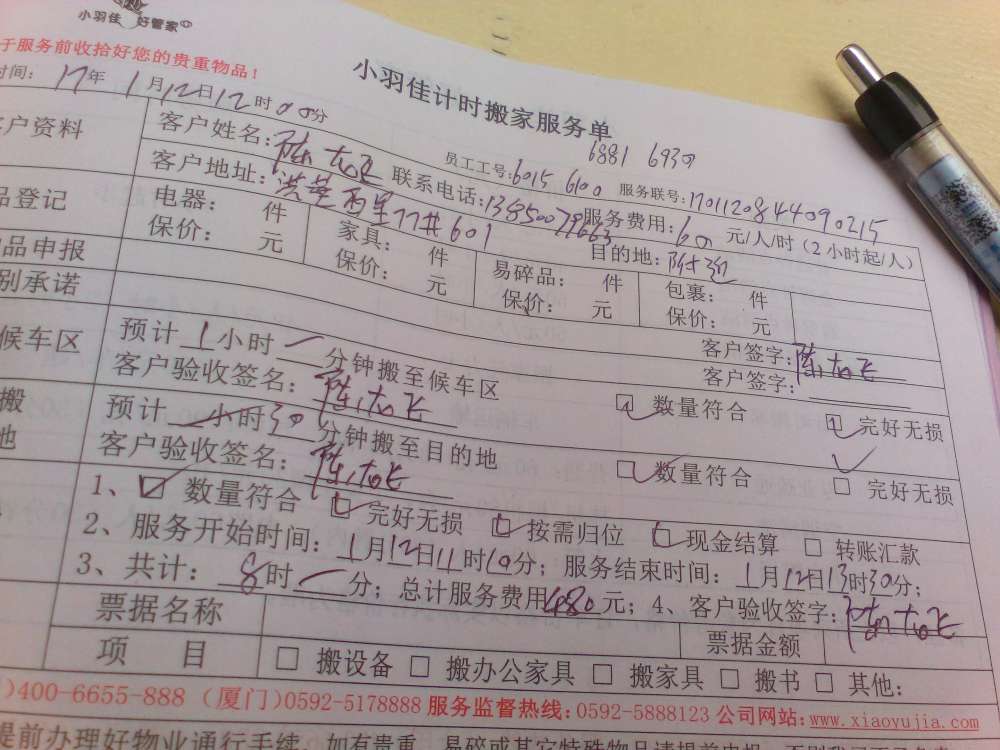 小羽佳 好管家
于服务前收拾好您的贵重物品！
时间：17年1月12日12时00分
小羽佳计时搬家服务单
6881 6930
员工工号：6015 6100 服务联号：1701120844090215
客户资料
客户姓名：陈 飞 联系电话：13850079663 服务费用：60 元/人/时（2小时起/人）
客户地址：洪莲西里77# 601 目的地：附近
品登记
电器： 件 家具： 件 易碎品： 件 包裹： 件
保价： 元 保价： 元 保价： 元 保价： 元
品申报 客户签字：陈 飞
别承诺 客户签字：
候车区 预计1小时 分钟搬至候车区 数量符合 完好无损
客户验收签名：陈 飞
搬 预计 小时30分钟搬至目的地 数量符合 完好无损
地 客户验收签名：陈 飞
1、☑ 数量符合 ☑ 完好无损 ☑ 按需归位 ☑ 现金结算 □ 转账汇款
2、服务开始时间：1月12日11时10分；服务结束时间：1月12日13时30分；
3、共计：8时 分；总计服务费用480元；4、客户验收签字：陈 飞
票据名称 票据金额
项 目 □ 搬设备 □ 搬办公家具 □ 搬家具 □ 搬书 □ 其他：
)400-6655-888（厦门）0592-5178888 服务监督热线：0592-5888123 公司网站：www.xiaoyujia.com
提前办理好物业通行手续，如有贵重、易碎或其它特殊物品请提前申报，否则